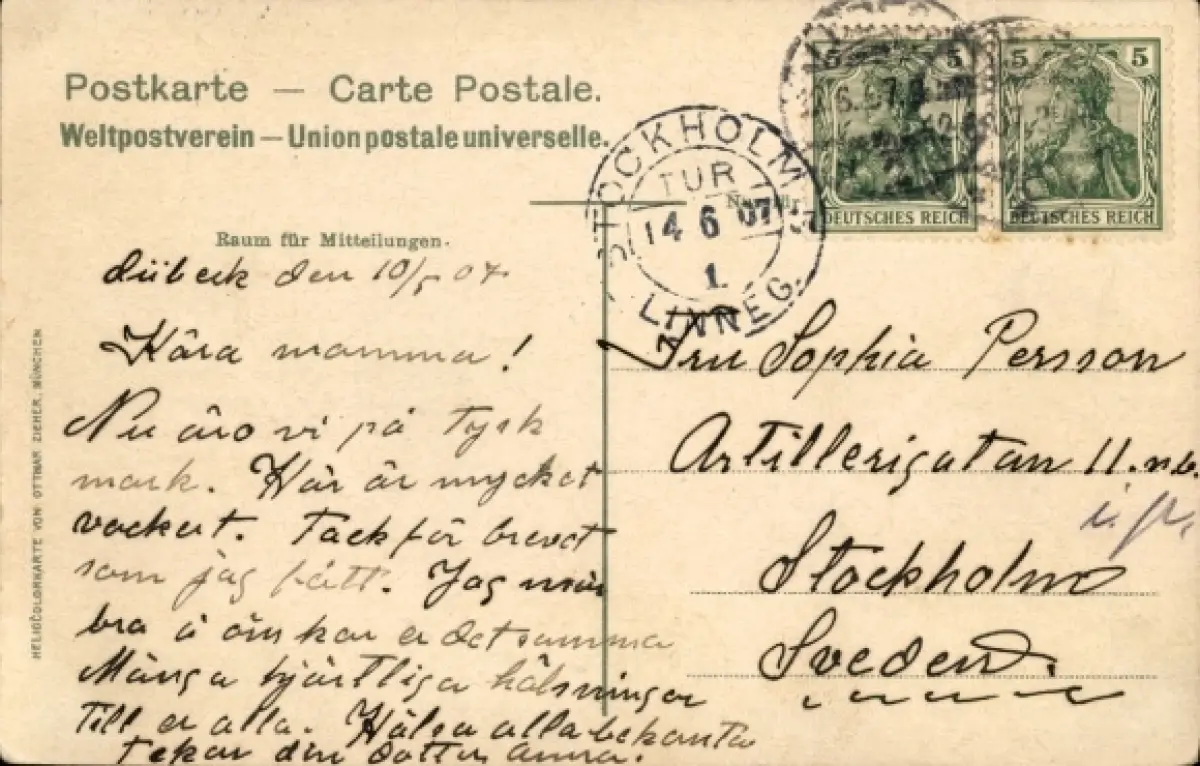 Postkarte — Carte Postale.
Weltpostverein — Union postale universelle.
STOCKHOLM
TUR
14 6 07
1.
LINNEG.
5 5
DEUTSCHES REICH
5 5
DEUTSCHES REICH
Raum für Mitteilungen.
Lübeck den 10/ 07
Kära mamma!
Nu äro vi på tysk
mark. Här är mycket
vackert. Tack för brevet
som jag fått. Jag mår
bra å önskar er detsamma
Många hjärtliga hälsningar
till er alla. Hälsa alla bekanta
Tekar din dotter Anna.
Fru Sophia Persson
Artillerigatan 11. n.b.
Stockholm
Sveden.
HELIOCOLORKARTE VON OTTMAR ZIEHER, MÜNCHEN